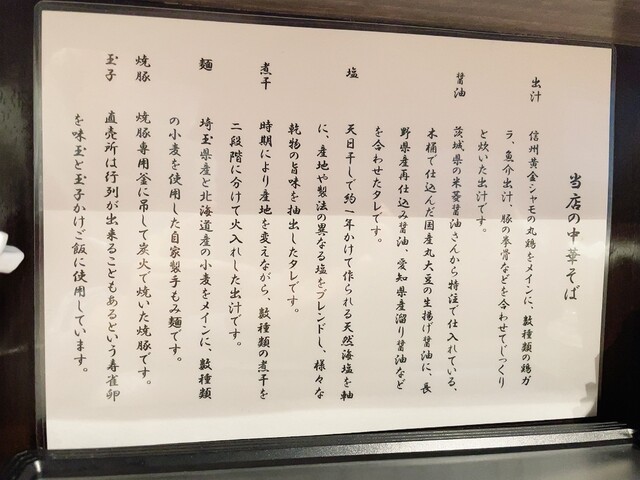 当店の中華そば
出汁 信州黄金シャモの丸鶏をメインに、数種類の鶏ガ
ラ、魚介出汁、豚の拳骨などを合わせてじっくり
と炊いた出汁です。
醤油 茨城県の米菱醤油さんから特注で仕入れている、
木桶で仕込んだ国産丸大豆の生揚げ醤油に、長
野県産再仕込み醤油、愛知県産溜り醤油など
を合わせたタレです。
塩 天日干しで約一年かけて作られる天然海塩を軸
に、産地や製法の異なる塩をブレンドし、様々な
乾物の旨味を抽出したタレです。
煮干 時期により産地を変えながら、数種類の煮干を
二段階に分けて火入れした出汁です。
麺 埼玉県産と北海道産の小麦をメインに、数種類
の小麦を使用した自家製手もみ麺です。
焼豚 焼豚専用釜に吊して炭火で焼いた焼豚です。
玉子 直売所は行列が出来ることもあるという寿雀卵
を味玉と玉子かけご飯に使用しています。